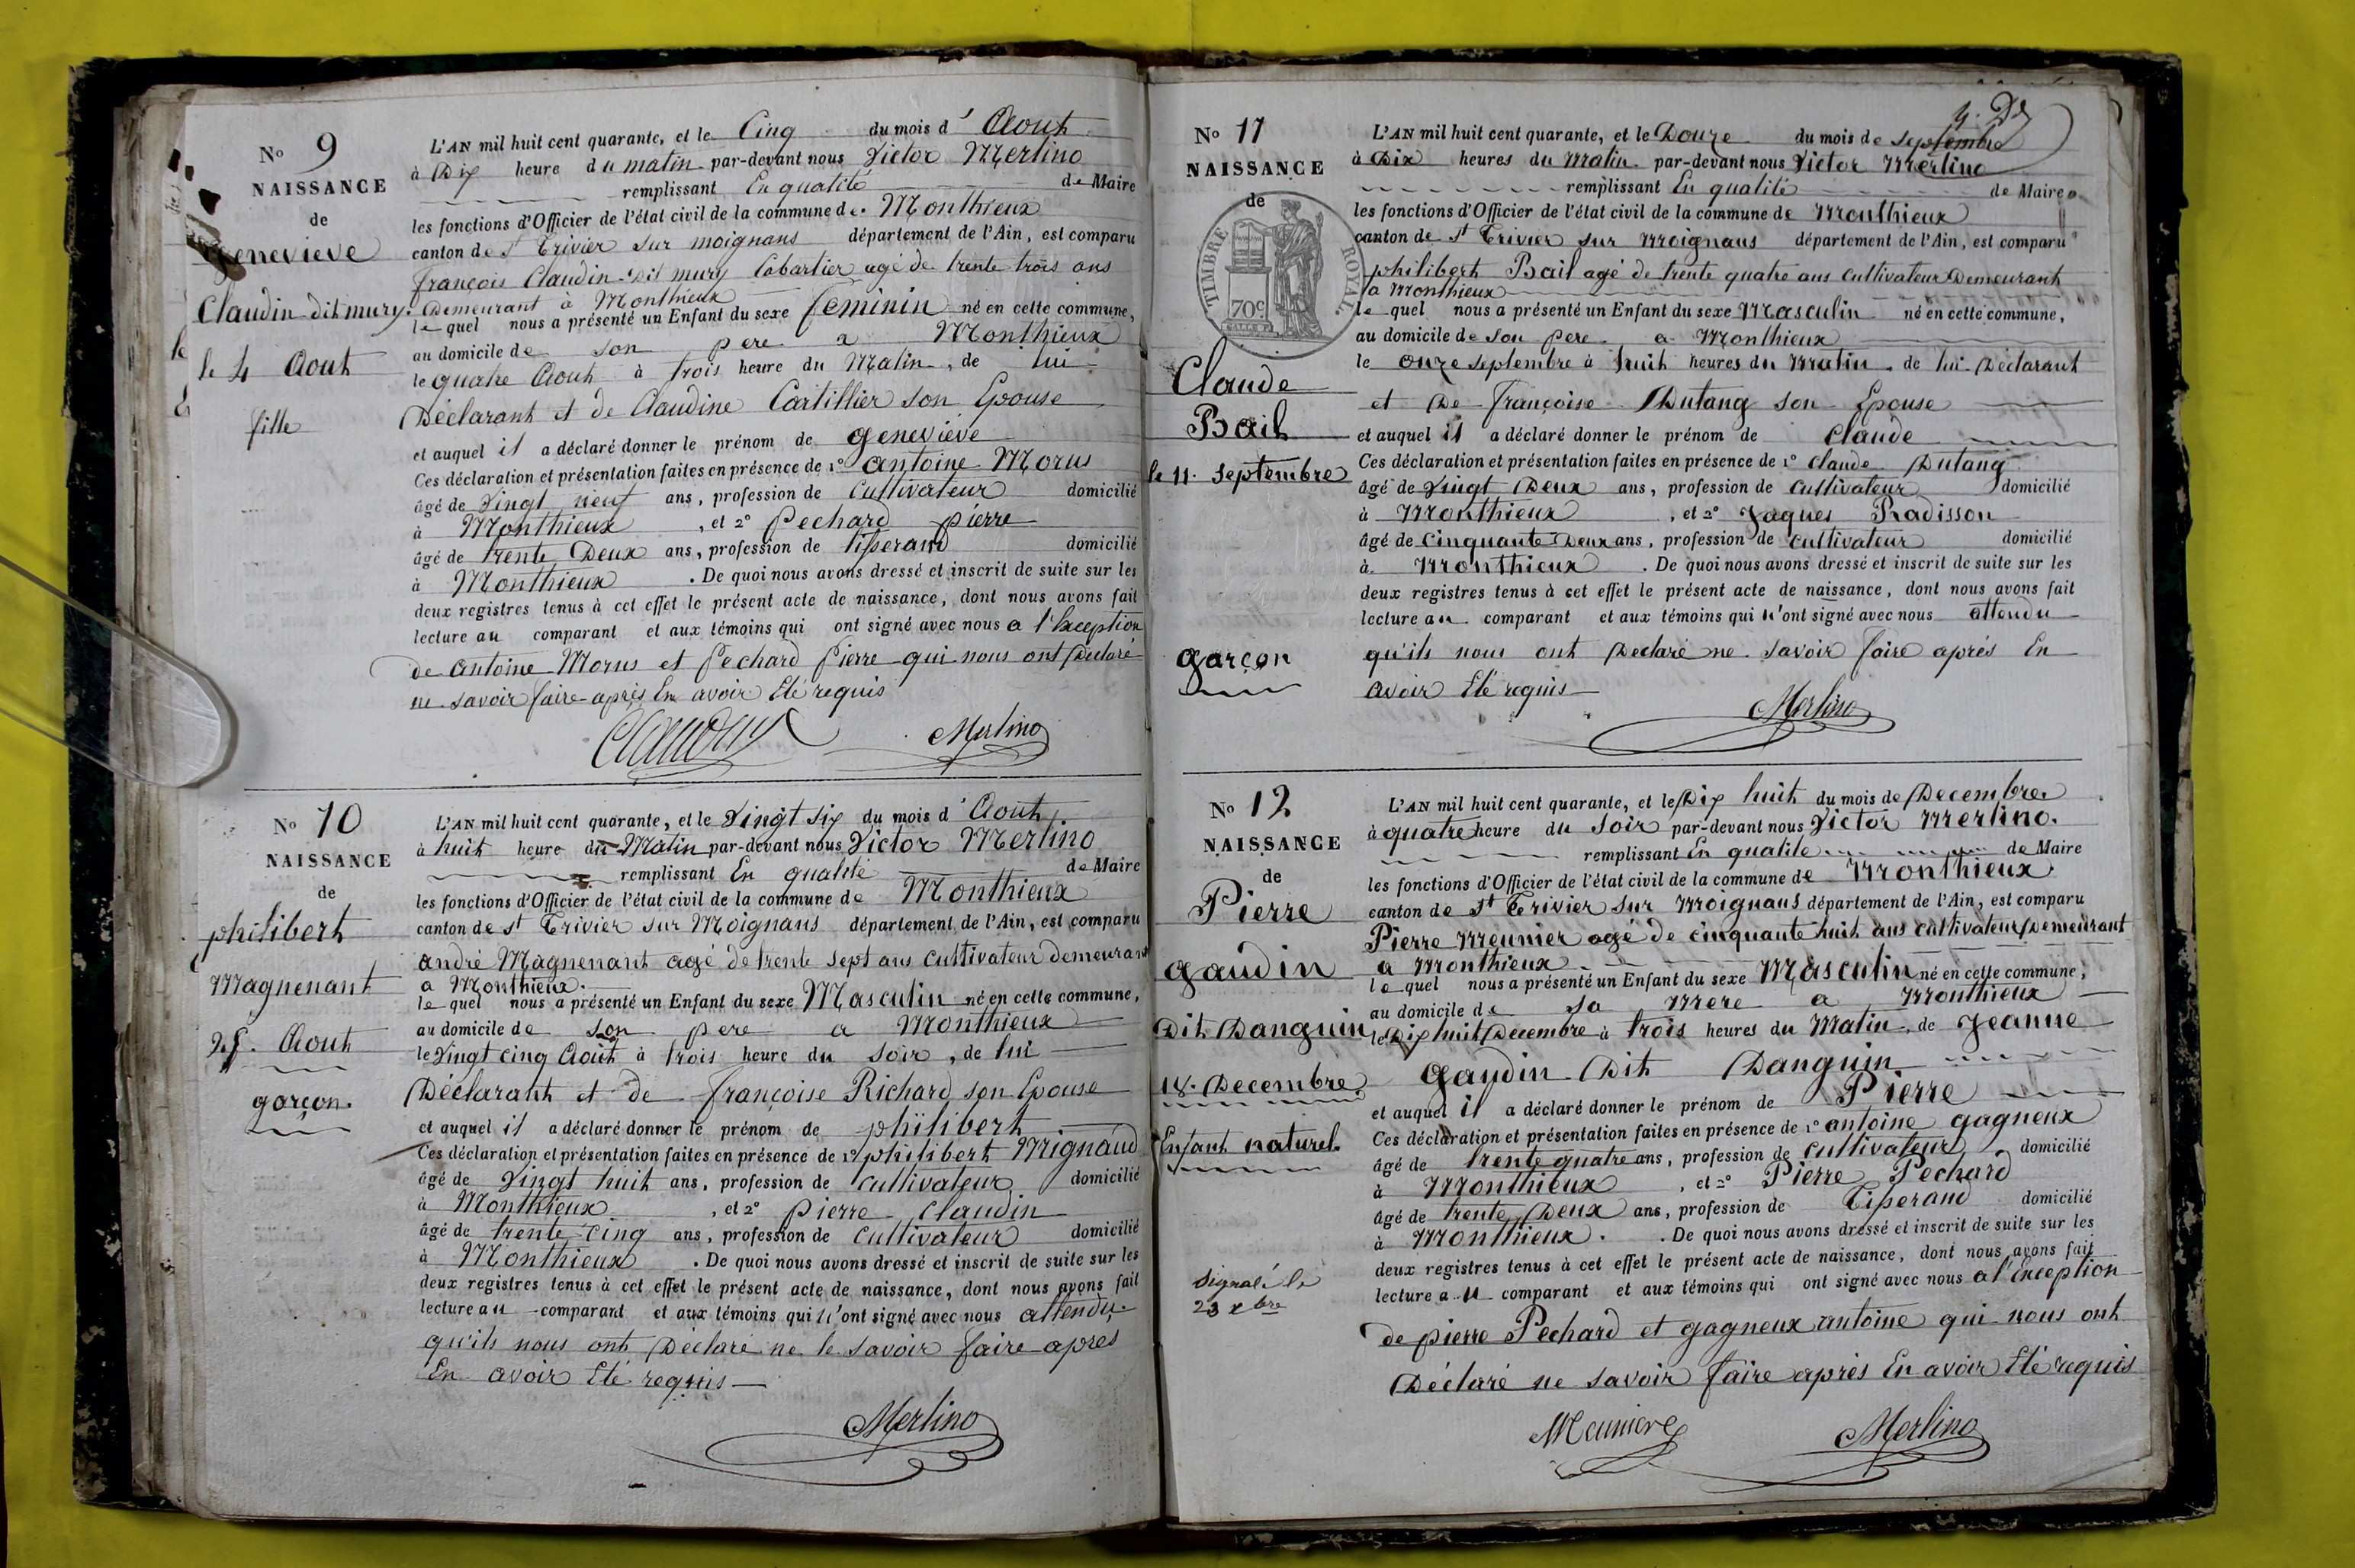 No 9
NAISSANCE
de
Genevieve
Claudin dit mury.
le 4 Aout
fille
L'AN mil huit cent quarante, et le Cinq du mois d' Aout
à Dix heure du matin par-devant nous Victor Merlino
remplissant En qualité de Maire
les fonctions d'Officier de l'état civil de la commune de Monthieux
canton de St Trivier sur moignans département de l'Ain, est comparu
françois Claudin dit mury Cabartier agé de trente trois ans
Demeurant à Monthieux
le quel nous a présenté un Enfant du sexe feminin né en cette commune,
au domicile de son pere a Monthieux
le quatre Aout à trois heure du Matin, de lui
Déclarant et de Claudine Cartillier son Epouse
et auquel il a déclaré donner le prénom de genevieve
Ces déclaration et présentation faites en présence de 1º antoine Morus
âgé de Vingt neuf ans, profession de Cultivateur domicilié
à Monthieux, et 2º Pechard pierre
âgé de trente Deux ans, profession de tisserand domicilié
à Monthieux. De quoi nous avons dressé et inscrit de suite sur les
deux registres tenus à cet effet le présent acte de naissance, dont nous avons fait
lecture au comparant et aux témoins qui ont signé avec nous a l'Exception
de antoine Morus et Pechard Pierre qui nous ont Déclaré
ne savoir faire après En avoir Eté requis
Claudin Merlino
No 10
NAISSANCE
de
philibert
Magnenant
25. Aout
garçon.
L'AN mil huit cent quarante, et le Vingt six du mois d' Aout
à huit heure du Matin par-devant nous Victor Merlino
remplissant En qualité de Maire
les fonctions d'Officier de l'état civil de la commune de Monthieux
canton de St Trivier sur Moignans département de l'Ain, est comparu
andré Magnenant agé de trente sept ans cultivateur demeurant
a Monthieux.
le quel nous a présenté un Enfant du sexe Masculin né en cette commune,
au domicile de son pere a Monthieux
le Vingt cinq Août à trois heure du soir, de lui
Déclarant et de françoise Richard son Epouse
et auquel il a déclaré donner le prénom de philibert
Ces déclaration et présentation faites en présence de 1º philibert Mignaud
âgé de Vingt huit ans, profession de cultivateur domicilié
à Monthieux, et 2º pierre Claudin
âgé de trente cinq ans, profession de cultivateur domicilié
à Monthieux. De quoi nous avons dressé et inscrit de suite sur les
deux registres tenus à cet effet le présent acte de naissance, dont nous avons fait
lecture au comparant et aux témoins qui n'ont signé avec nous attendu
qu'ils nous ont Déclaré ne le savoir faire apres
En avoir Eté requis
Merlino
No 11
NAISSANCE
de
TIMBRE ROYAL
70c
Claude
Bail
le 11. Septembre
garçon
L'AN mil huit cent quarante, et le Douze du mois de Septembre
à Dix heures du Matin par-devant nous Victor Merlino
remplissant En qualité de Maire
les fonctions d'Officier de l'état civil de la commune de Monthieux
canton de St Trivier sur Moignans département de l'Ain, est comparu
philibert Bail agé de trente quatre ans cultivateur Demeurant
a Monthieux
le quel nous a présenté un Enfant du sexe Masculin né en cette commune,
au domicile de son pere a Monthieux
le onze septembre à huit heures du Matin de lui Déclarant
et De françoise Dutang son Epouse
et auquel il a déclaré donner le prénom de Claude
Ces déclaration et présentation faites en présence de 1º Claude Dutang
âgé de Vingt Deux ans, profession de cultivateur domicilié
à Monthieux, et 2º Jaques Radisson
âgé de Cinquante Deux ans, profession de cultivateur domicilié
à Monthieux. De quoi nous avons dressé et inscrit de suite sur les
deux registres tenus à cet effet le présent acte de naissance, dont nous avons fait
lecture au comparant et aux témoins qui n'ont signé avec nous attendu
qu'ils nous ont Declaré ne savoir faire aprés En
avoir Eté requis
Merlino
No 12
NAISSANCE
de
Pierre
gaudin
Dit Danguin
18. Decembre
Enfant naturel.
Signalé le
23 xbre
L'AN mil huit cent quarante, et le Dix huit du mois de Decembre
à quatre heure du soir par-devant nous Victor Merlino.
remplissant En qualité de Maire
les fonctions d'Officier de l'état civil de la commune de Monthieux
canton de St Trivier sur Moignans département de l'Ain, est comparu
Pierre Meunier agé de cinquante huit ans cultivateur Demeurant
a Monthieux
le quel nous a présenté un Enfant du sexe Masculin né en cette commune,
au domicile de sa mere a Monthieux
le Dix huit Decembre à trois heures du Matin, de Jeanne
gaudin Dit Danguin
et auquel il a déclaré donner le prénom de Pierre
Ces déclaration et présentation faites en présence de 1º antoine gagneux
âgé de trente quatre ans, profession de cultivateur domicilié
à Monthieux, et 2º Pierre Pechard
âgé de trente Deux ans, profession de Tisserand domicilié
à Monthieux. De quoi nous avons dressé et inscrit de suite sur les
deux registres tenus à cet effet le présent acte de naissance, dont nous avons fait
lecture au comparant et aux témoins qui ont signé avec nous a l'Exception
de pierre Pechard et gagneux antoine qui nous ont
Déclaré ne savoir faire aprés En avoir Eté requis
Meunier Merlino